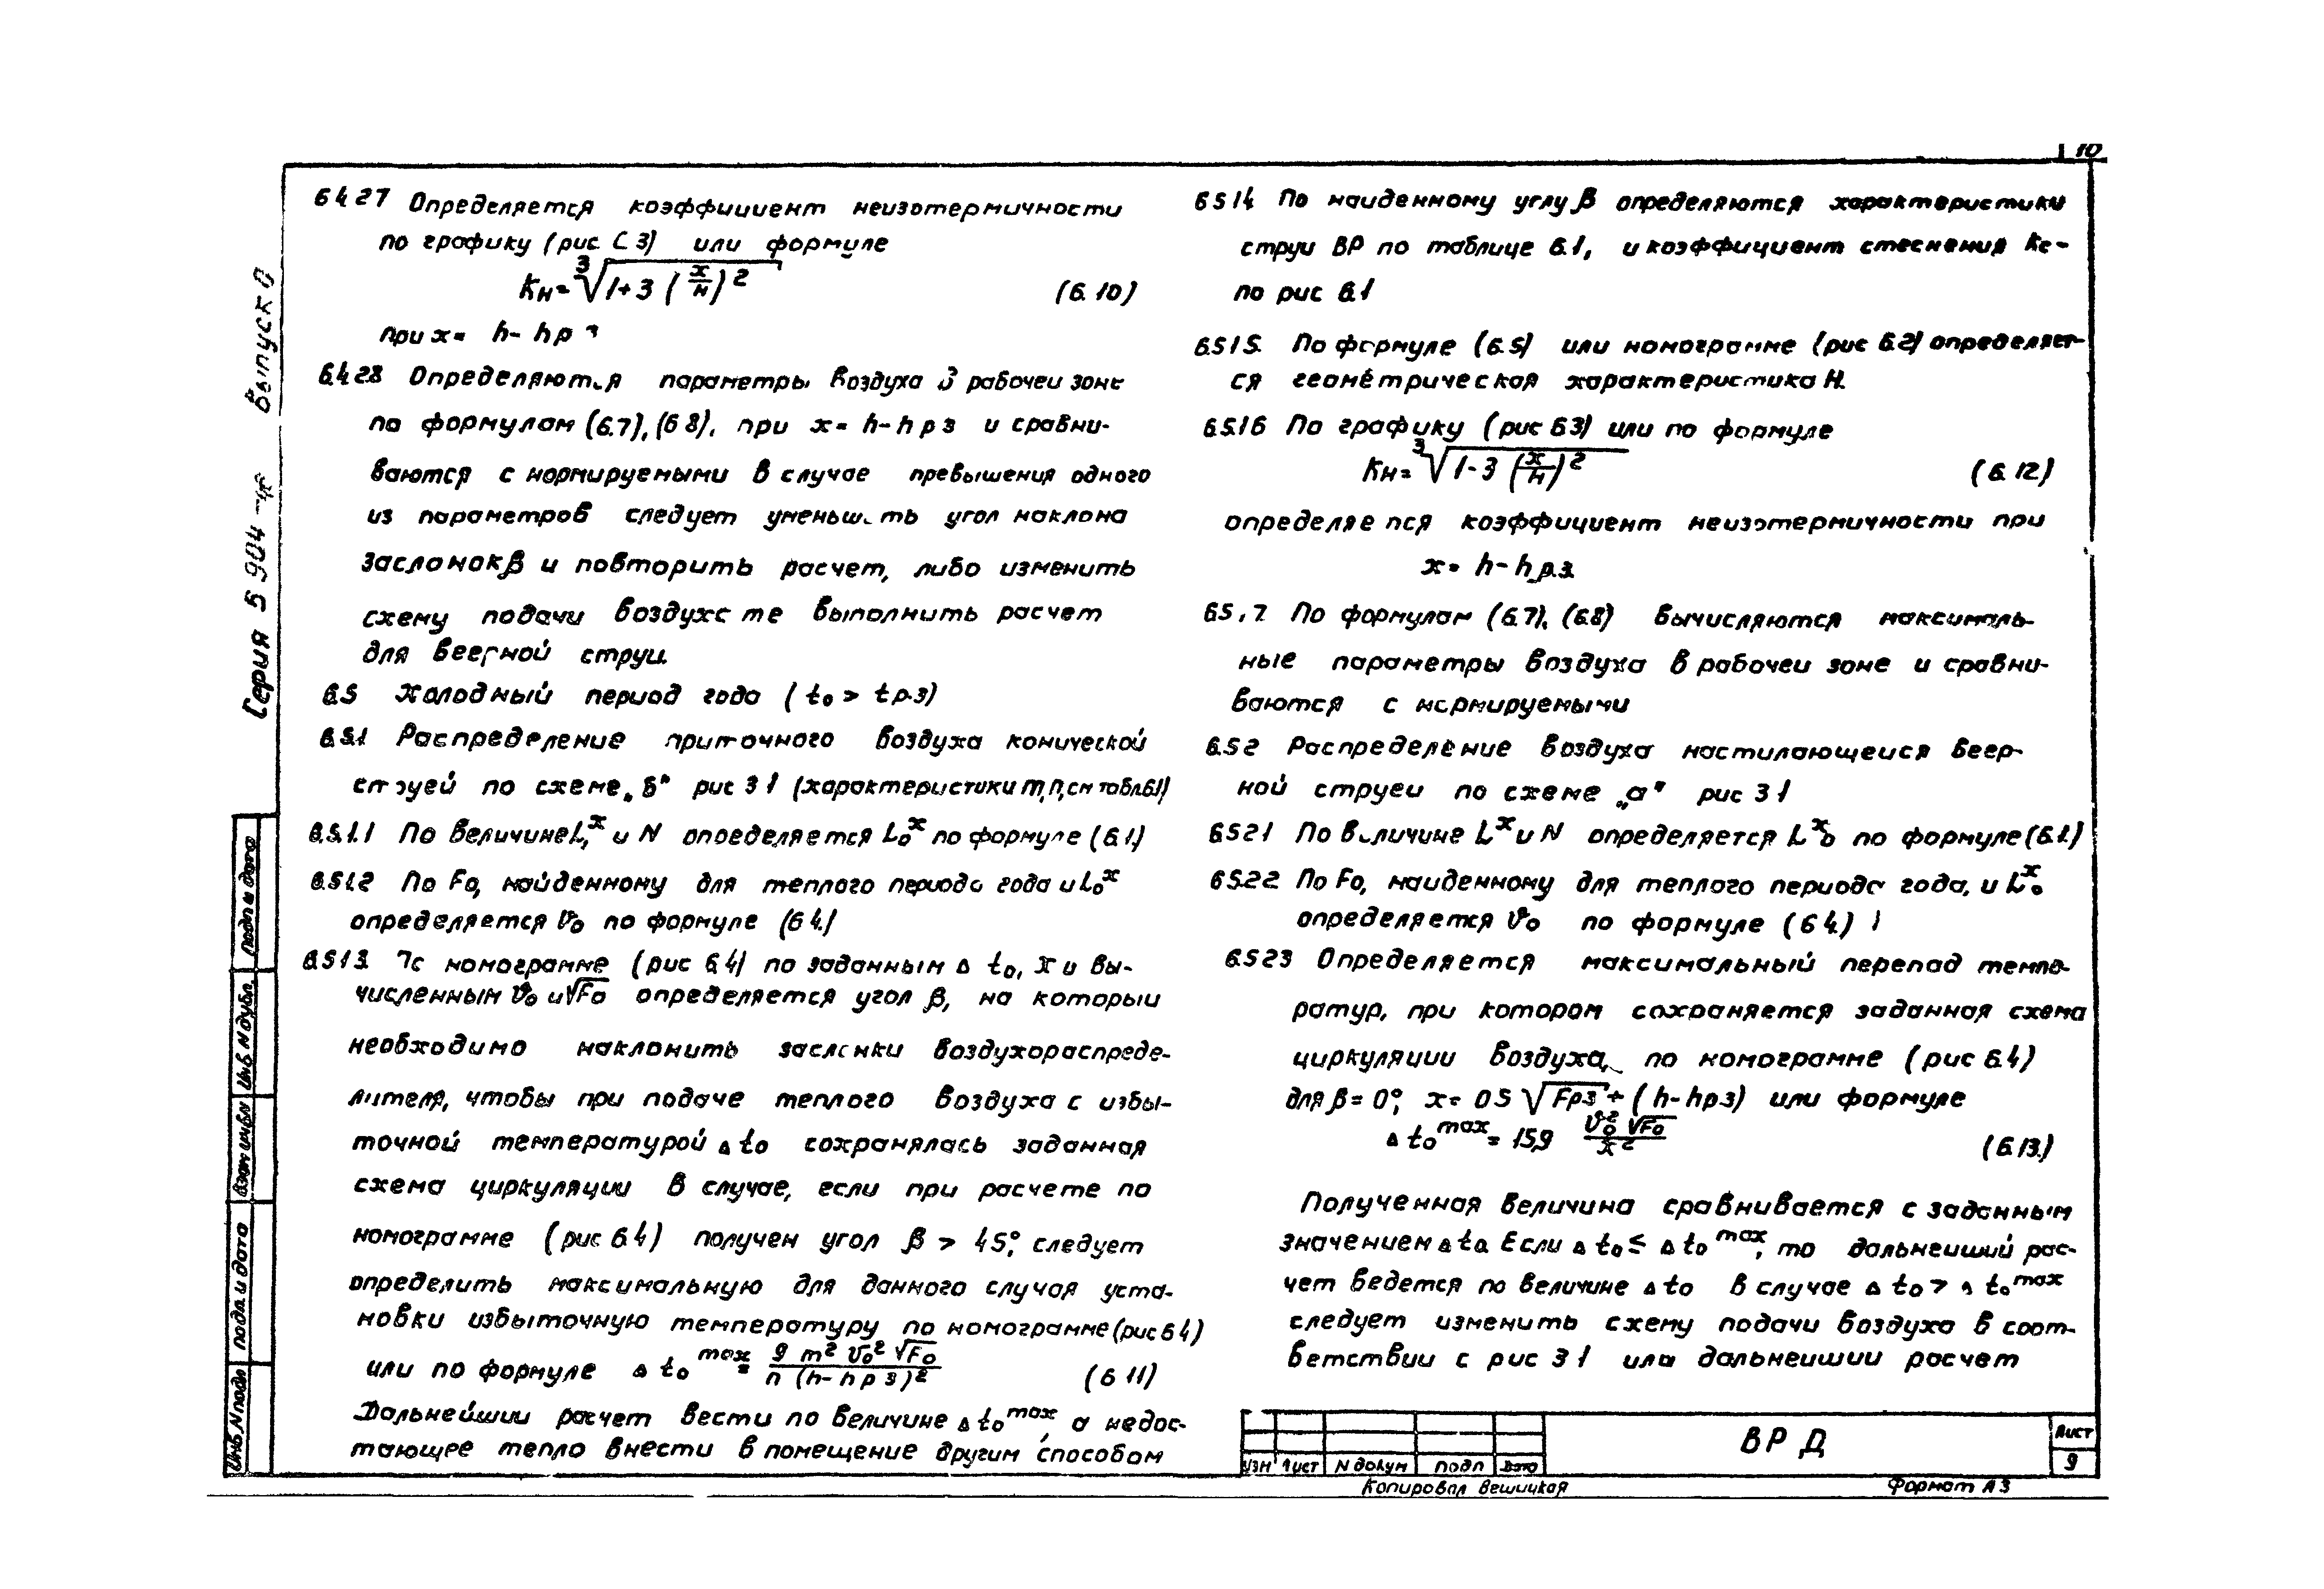 10
6.4.2.7 Определяется коэффициент неизотермичности
по графику (рис. 6.3) или формуле
Kн = ∛(1+3(x/H)²) (6.10)
при x = h - hр.з
6.4.2.8 Определяются параметры воздуха в рабочей зоне
по формулам (6.7), (6.8), при x = h - hр.з и сравни-
ваются с нормируемыми В случае превышения одного
из параметров следует уменьшить угол наклона
заслонок β и повторить расчет, либо изменить
схему подачи воздуха те выполнить расчет
для веерной струи.
6.5 Холодный период года (t₀ > tр.з)
6.5.1 Распределение приточного воздуха конической
струей по схеме „б" рис 3 1 (характеристики m, n, см табл.6.1)
6.5.1.1 По величине L₁ˣ и N определяется L₀ˣ по формуле (6.1)
6.5.1.2 По F₀, найденному для теплого периода года и L₀ˣ
определяется V₀ по формуле (6 4.)
6.5.1.3. По номограмме (рис 6.4) по заданным Δ t₀, x и вы-
численным V₀ и √F₀ определяется угол β, на который
необходимо наклонить заслонки воздухораспреде-
лителя, чтобы при подаче теплого воздуха с избы-
точной температурой Δt₀ сохранялась заданная
схема циркуляции В случае, если при расчете по
номограмме (рис 6.4) получен угол β > 45°, следует
определить максимальную для данного случая уста-
новки избыточную температуру по номограмме (рис 6 4)
или по формуле Δ t₀ᵐᵃˣ = 9 m² V₀² √F₀ / n (h - hр з)² (6 11)
Дальнейший расчет вести по величине Δt₀ᵐᵃˣ, а недос-
тающее тепло внести в помещение другим способом
6 5 1.4 По найденному углу β определяются характеристики
струи ВР по таблице 6.1, и коэффициент стеснения Kс -
по рис 6.1
6.5.1.5. По формуле (6.5) или номограмме (рис 6.2) определяет-
ся геометрическая характеристика H.
6.5.1.6 По графику (рис 6 3) или по формуле
Kн = ∛(1-3(x/H)²) (6.12)
определяется коэффициент неизотермичности при
x = h - hр.з.
6.5.1.7 По формулам (6.7), (6.8) вычисляются максималь-
ные параметры воздуха в рабочей зоне и сравни-
ваются с нормируемыми
6.5.2 Распределение воздуха настилающейся веер-
ной струей по схеме „а" рис 3 1
6.5.2.1 По величине Lˣ и N определяется Lˣ₀ по формуле (6.1.)
6 5.2.2 По F₀, найденному для теплого периода года, и Lˣ₀
определяется V₀ по формуле (6 4.)
6.5.2.3 Определяется максимальный перепад темпе-
ратур, при котором сохраняется заданная схема
циркуляции воздуха, по номограмме (рис 6.4)
для β = 0°, x = 0 5 √Fр з + (h - hр з) или формуле
Δ t₀ᵐᵃˣ = 15,9 V₀² √F₀ / x² (6.13.)
Полученная величина сравнивается с заданным
значением Δt₀. Если Δ t₀ ≤ Δ t₀ᵐᵃˣ, то дальнейший рас-
чет ведется по величине Δ t₀ В случае Δ t₀ > Δ t₀ᵐᵃˣ
следует изменить схему подачи воздуха в соот-
ветствии с рис 3 1 или дальнейший расчет
Серия 5 904 выпуск 0
Подп и дата
Инв N дубл.
Взам инв N
подп и дата
Инв N подл
изм лист N докум подп дата
ВР Д
Лист
9
Копировал Вешицкая
Формат А3